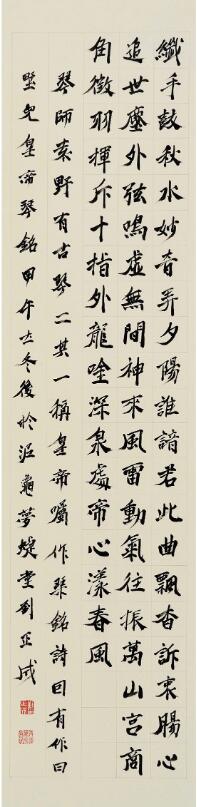 纖手鼓秋水妙音弄夕陽誰諳君此曲飄杳訴衷腸心
追世塵外弦鳴虛無間神來風雷動氣往振萬山宮商
角徵羽揮斥十指外龍唫深泉處帝心漾春風
琴師袁野有古琴二其一稱皇帝囑作琴銘詩曰有作曰
聖皇帝琴銘甲午冬後於沤夢堂劉正成